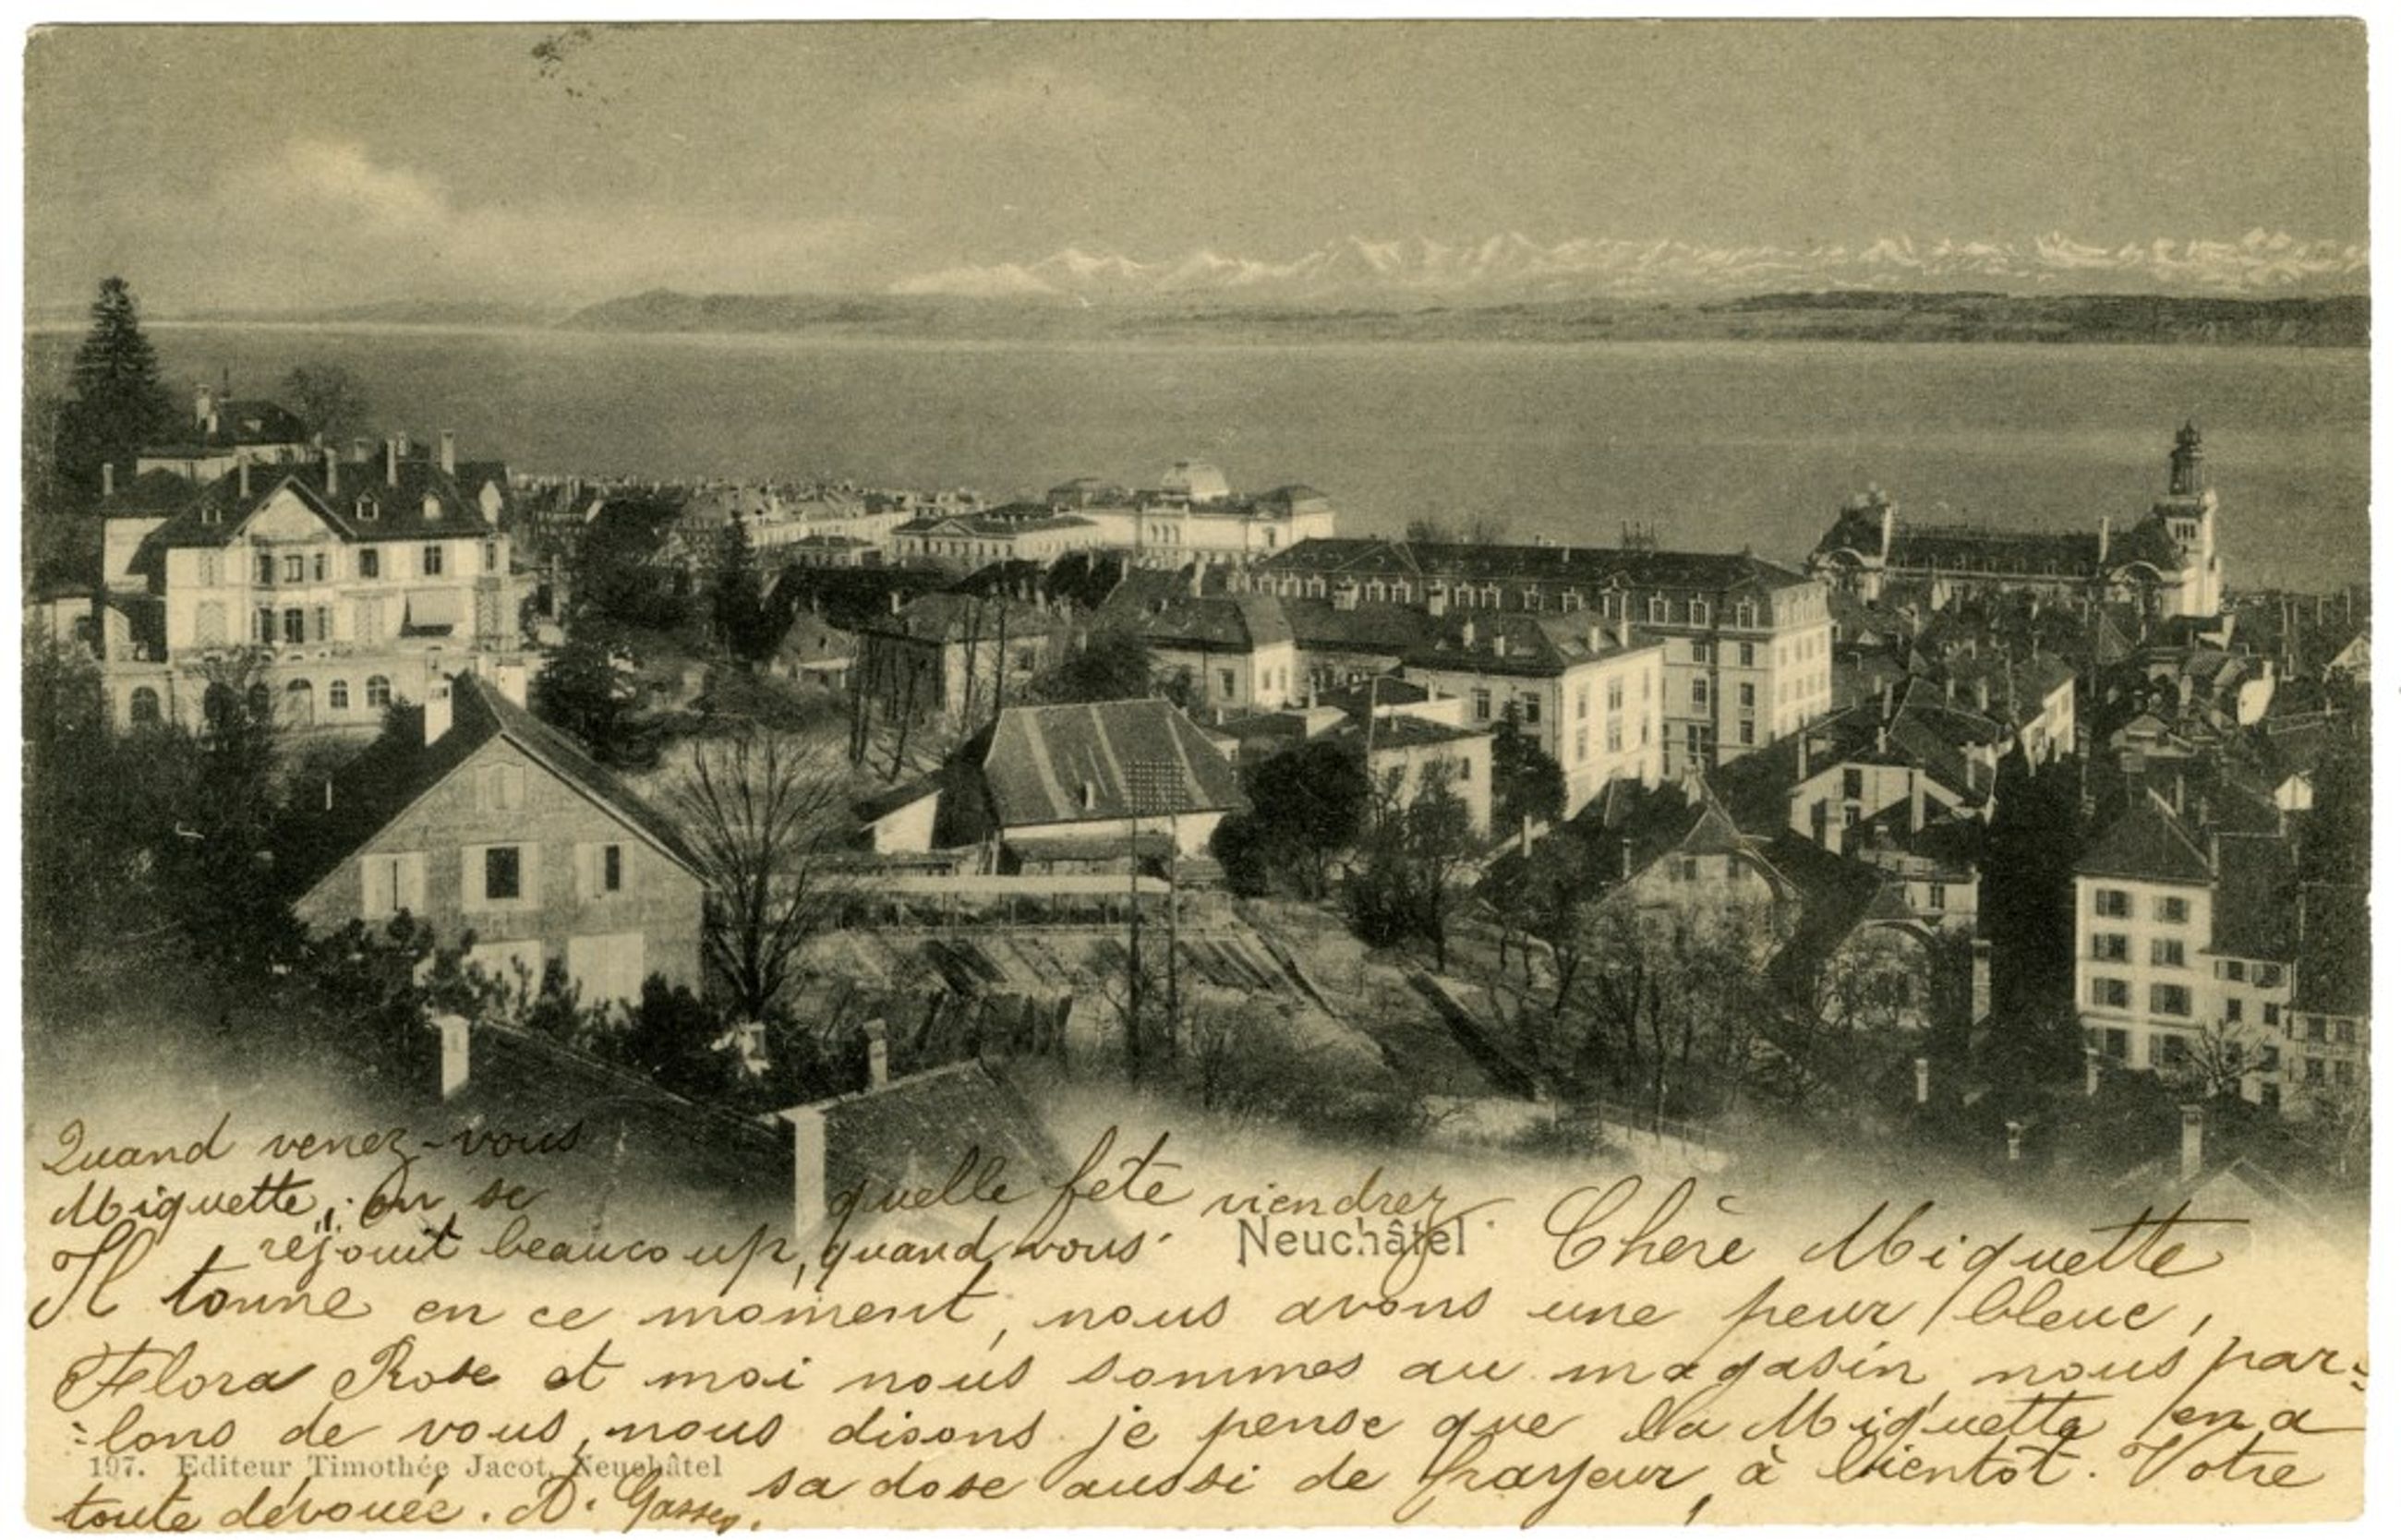 Neuchâtel
Chère Miquette
Il tonne en ce moment, nous avons une peur bleue,
Flora Rose et moi nous sommes au magasin nous par-
-lons de vous, nous disons je pense que la Miquette en a
sa dose aussi de frayeur, à bientôt. Votre
toute dévouée. A. Gasser.
Quand venez-vous
Miquette, on se
réjouit beaucoup, quand vous
viendrez quelle fête
197. Editeur Timothée Jacot, Neuchâtel